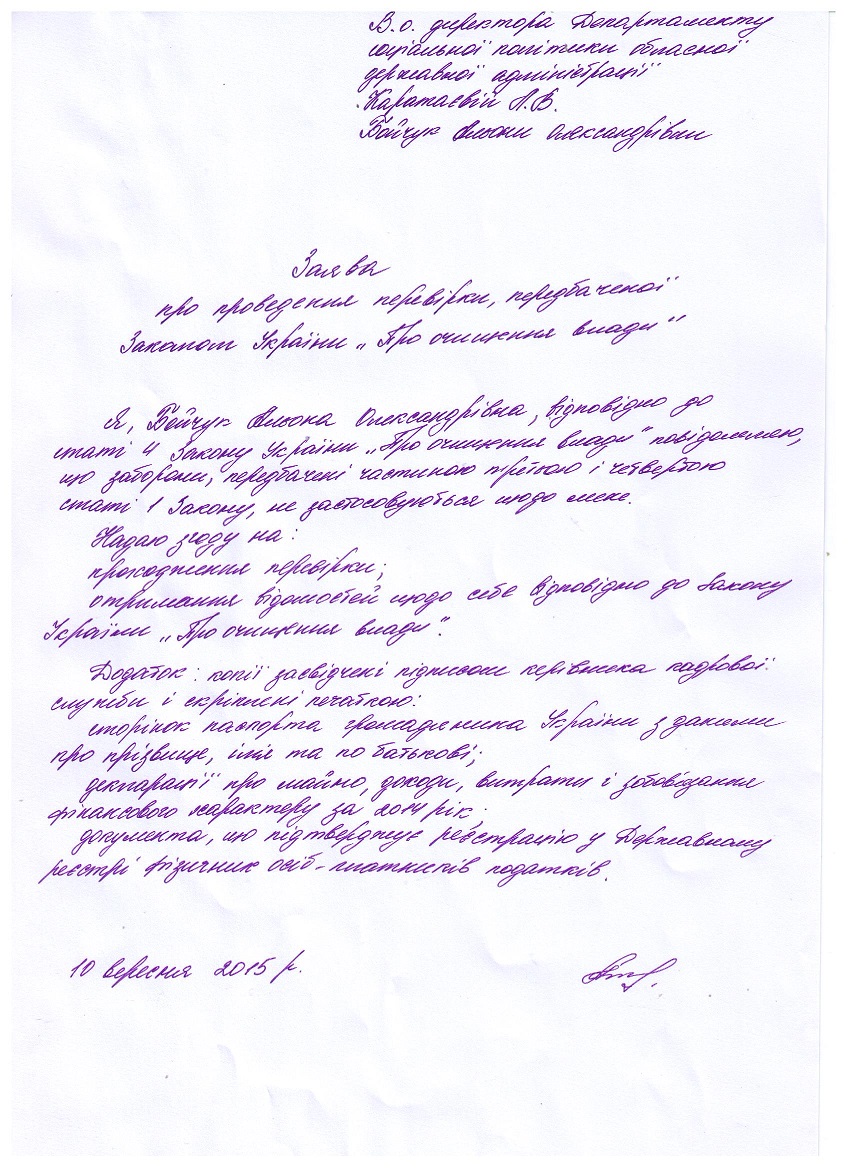 В.о. директора Департаменту
соціальної політики обласної
державної адміністрації
Каратаєвій Л.В.
Бойчук Альони Олександрівни
Заява
про проведення перевірки, передбаченої
Законом України „Про очищення влади"
Я, Бойчук Альона Олександрівна, відповідно до
статі 4 Закону України „Про очищення влади" повідомляю,
що заборони, передбачені частиною третьою і четвертою
статі 1 Закону, не застосовуються щодо мене.
Надаю згоду на:
проходження перевірки;
отримання відомостей щодо себе відповідно до Закону
України „Про очищення влади".
Додаток: копії засвідчені підписом керівника кадрової
служби і скріплені печаткою:
сторінок паспорта громадянина України з даними
про прізвище, ім'я та по батькові;
декларації про майно, доходи, витрати і зобов'язання
фінансового характеру за 2014 рік;
документа, що підтверджує реєстрацію у Державному
реєстрі фізичних осіб-платників податків.
10 вересня 2015 р.